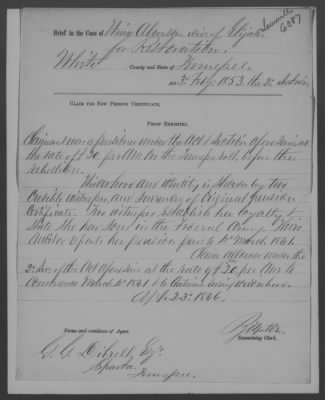 6087
Brief in the Case of Nina Alverson, widow of Elijah
for Restoration.
White County and State of Tennessee.
Act 3d Feby. 1853, the 2d Section
CLAIM FOR NEW PENSION CERTIFICATE.
PROOF EXHIBITED.
Claimant was a pensioner under the Act & Section aforesaid at
the rate of $20 per Ann on the Tennessee roll before the
rebellion.
Widowhood and identity is shown by two
Credible witnesses, and surrender of Original pension
Certificate. Two witnesses establish her loyalty &
State she had sons in the Federal Army. Third
Auditor reports her pension paid to 4th March 1861.
Claim allowed under the
2d Sec of the Act aforesaid at the rate of $20 per Ann to
Commence March 4th 1861 & to Continue during widowhood.
Apl. 23d 1866.
Name and residence of Agent.
Examining Clerk.
G. G. Dibrell, Esqr.
Sparta.
Tennessee.